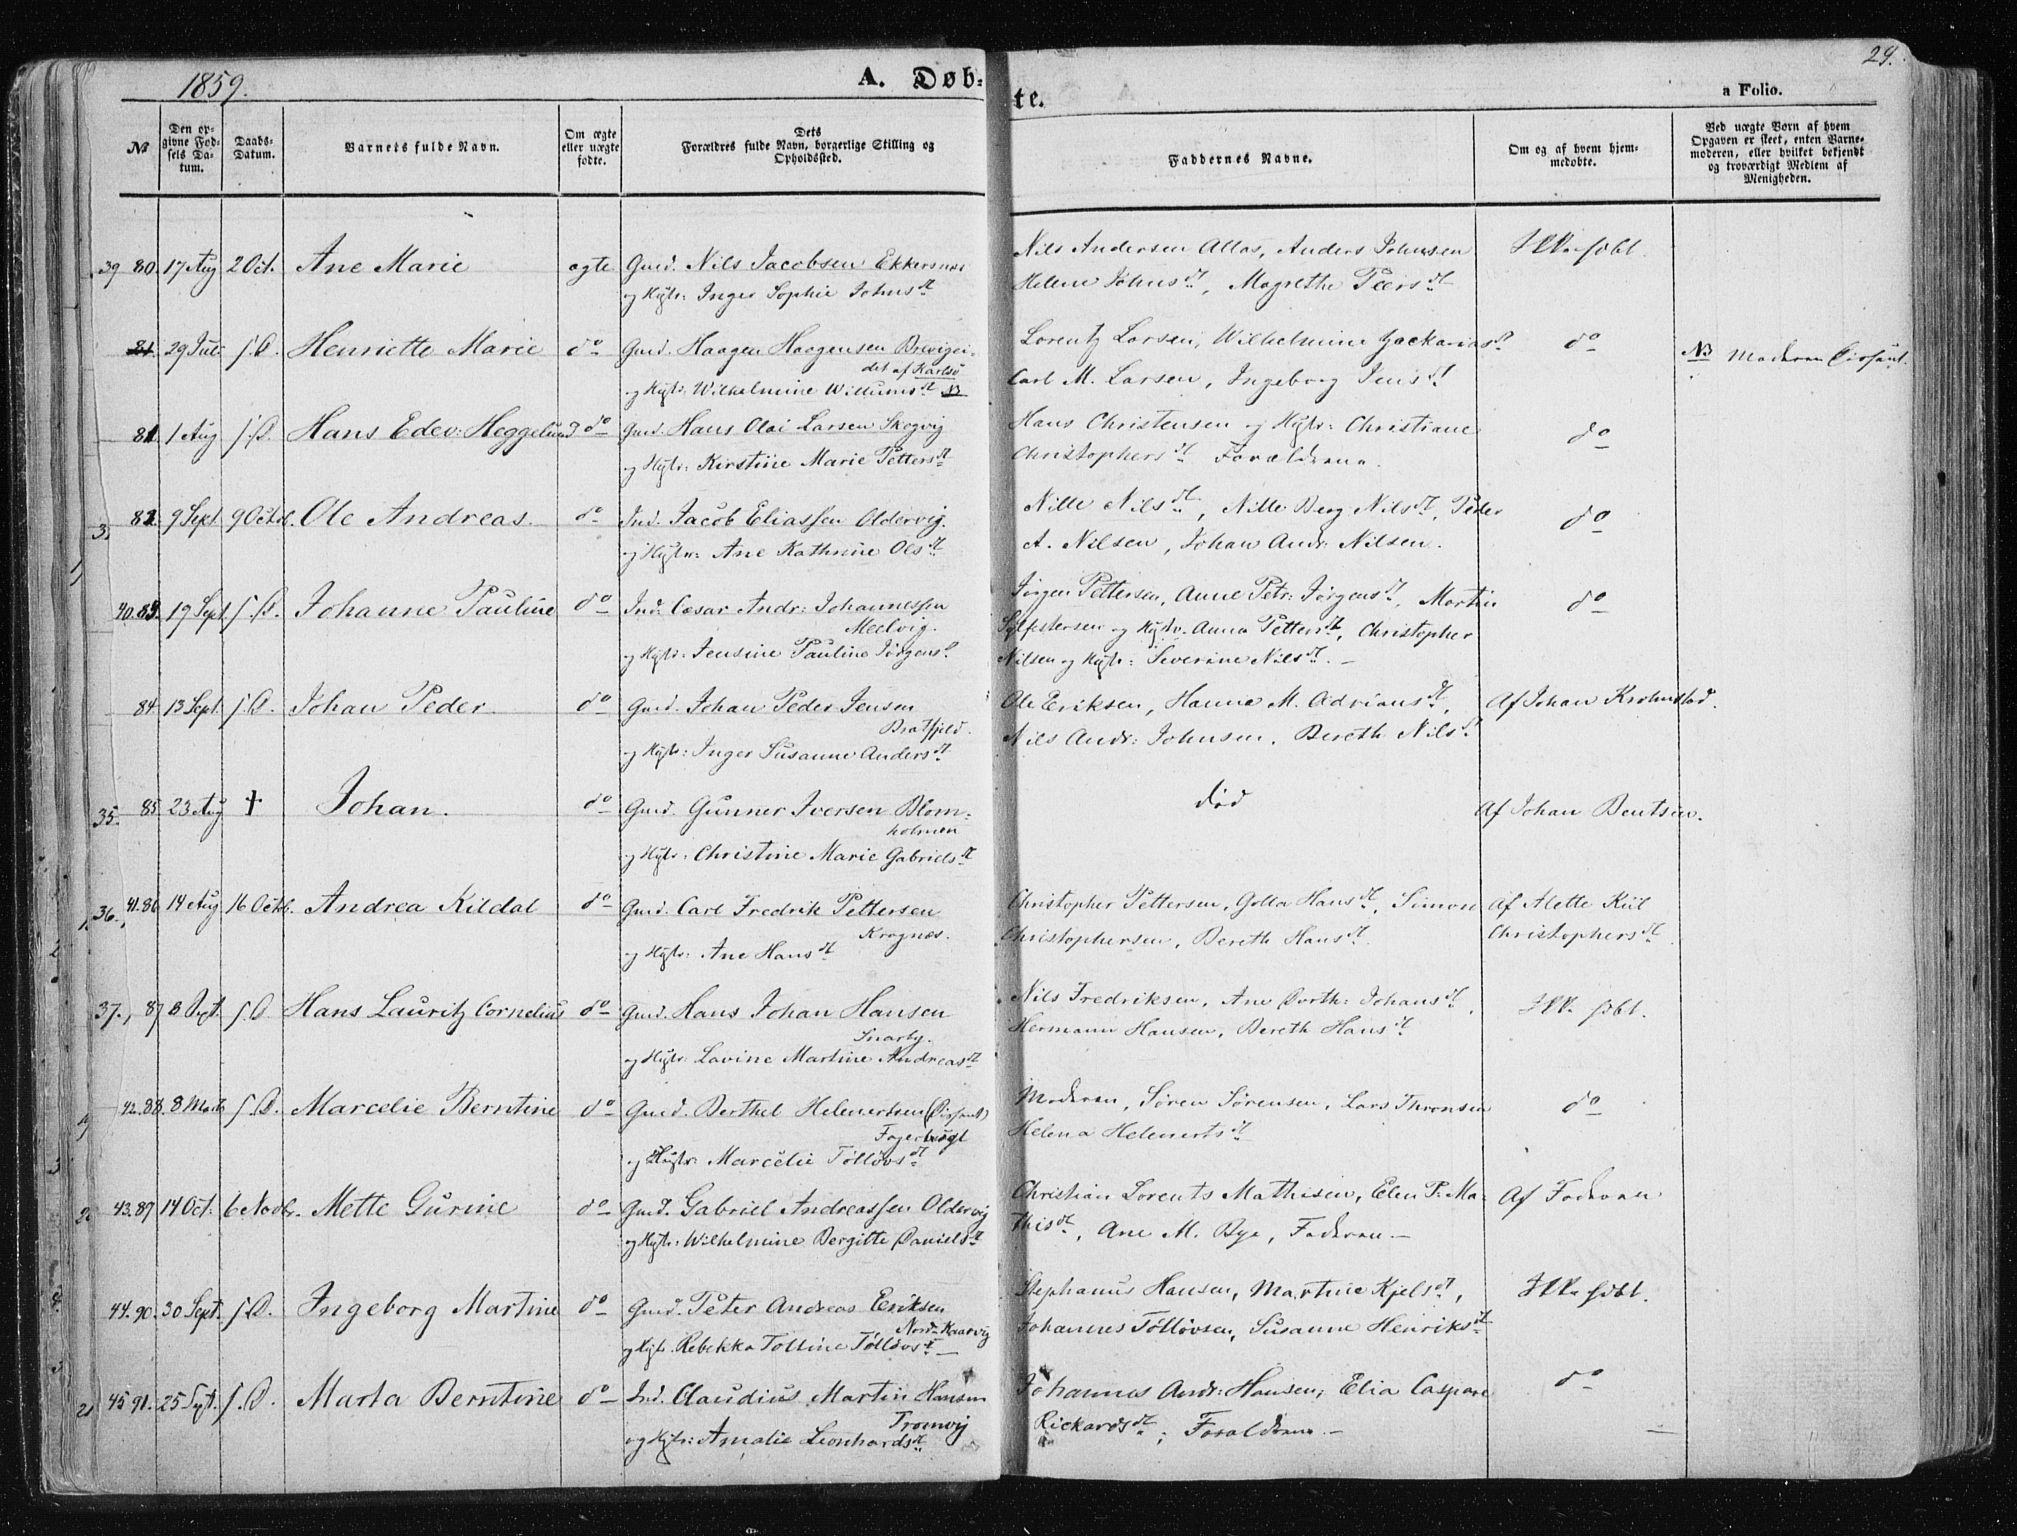 1859.
A. Døb-
te.
29.
a Folio.
No
Den op-
givne Fød-
sels Da-
tum.
Daabs-
Datum.
Barnets fulde Navn.
Om ægte
eller uægte
fødte.
Dets
Forældres fulde Navn, borgerlige Stilling og
Opholdssted.
Faddernes Navne.
Om og af hvem hjem-
medøbte.
Ved uægte Børn af hvem
Opgaven er skeet, enten Barne-
moderen, eller hvilket bekjendt
og troværdigt Medlem af
Menigheden.
39 80. 17 Aug 2 Oct. Ane Marie ægte Gmd. Nils Jacobsen Ekkersnæs
og Hstr: Inger Sophie Johns dt
Nils Andersen Allas, Anders Johnsen
Helene Johns dt, Magrethe Peers dt
Ikke hjdbt.
81 29 Juli s. D. Henriette Marie do Gmd. Haagen Haagensen Brevigei-
det af Karlsø
og Hstr: Wilhelmine Willums dt NB
Lorentz Larsen, Wilhelmine Zackarias dt
Carl M. Larsen, Ingeborg Jens dt
do
NB Moderen Dissent.
81 1 Aug s. D. Hans Edev: Heggelund do Gmd. Hans Olai Larsen Skogvig
og Hstr: Kirstine Marie Petters dt
Hans Christensen og Hstr: Christiane
Christophers dt Forældrene.
do
3, 82. 9 Sept 9 Octob. Ole Andreas. do Ind. Jacob Eliassen Oldervig.
og Hstr: Ane Kathrine Ols dt
Nille Nils dt, Nille Berg Nils dt, Peder
A. Nilsen, Johan Andr: Nilsen.
do
40. 83. 19 Sept s. D. Johanne Pauline do Ind: Cæsar Andr: Johannessen
Meelvig.
og Hstr: Jensine Pauline Jørgens dt
Jørgen Pettersen, Anne Petr: Jørgens dt, Martin
Sylfestersen og Hstr. Anna Petters dt, Christopher
Nilsen og Hstr: Severine Nils dt. —
do
84 13 Sept. s. D. Johan Peder do Gmd. Johan Peder Jensen
Bratfjeld.
og Hstr: Inger Susanne Anders dt
Ole Eriksen, Hanna M. Adrians dt,
Nils Andr: Johnsen, Bereth Nils dt
Af Johan Krohnstad.
35. 85 23 Aug † Johan. do Gmd. Gunner Iversen Blom-
holmen
og Hstr: Christine Marie Gabriels dt
død
Af Johan Bentsen.
36., 41. 86 14 Aug 16 Octob. Andrea Kildal do Gmd. Carl Fredrik Pettersen
Kragnæs.
og Hstr: Ane Hans dt
Christopher Pettersen, Golla Hans dt, Simon
Christophersen, Bereth Hans dt.
Af Alette Kiil
Christophers dt
37., 87 8 Sept. s. D Hans Lauritz Cornelius do Gmd. Hans Johan Hansen
Snarby.
og Hstr: Lavine Martine Andreas dt
Nils Fredriksen, Ane Dorth: Johans dt,
Hermann Hansen, Bereth Hans dt
Ikke hjdbt.
42. 88. 8 Marts s. D. Marcelie Berntine do Gmd. Berthel Helenertsen (Dissent)
Fagerbugt
og Hstr: Marcelie Tolløvs dt
Moderen, Søren Sørensen, Lars Thronsen
Helena Helenerts dt
do
43. 89 14 Oct: 6 Novbr. Mette Gurine do Gmd. Gabriel Andreassen Oldervig
og Hstr: Wilhelmine Bergitte Daniels dt
Christian Lorents Mathisen, Elen P. Ma-
this dt, Ane M. Bye, Faderen. —
Af Faderen
44. 90. 30 Sept. s. D. Ingeborg Martine do Gmd. Peter Andreas Eriksen
Nord-Kaarvig
og Hstr. Rebekka Tolline Tølløvs dt —
Stephanus Hansen, Martine Kjels dt,
Johannes Tølløvsen, Susanne Henriks dt
Ikke hjdbt.
45. 91. 25 Sept. s. D. Marta Berntine do Ind. Claudius Martin Hansen
Tromvig
og Hstr: Amalie Leonhards dt
Johannes Andr: Hansen, Elia Caspare
Rickards dt; Forældrene. —
do